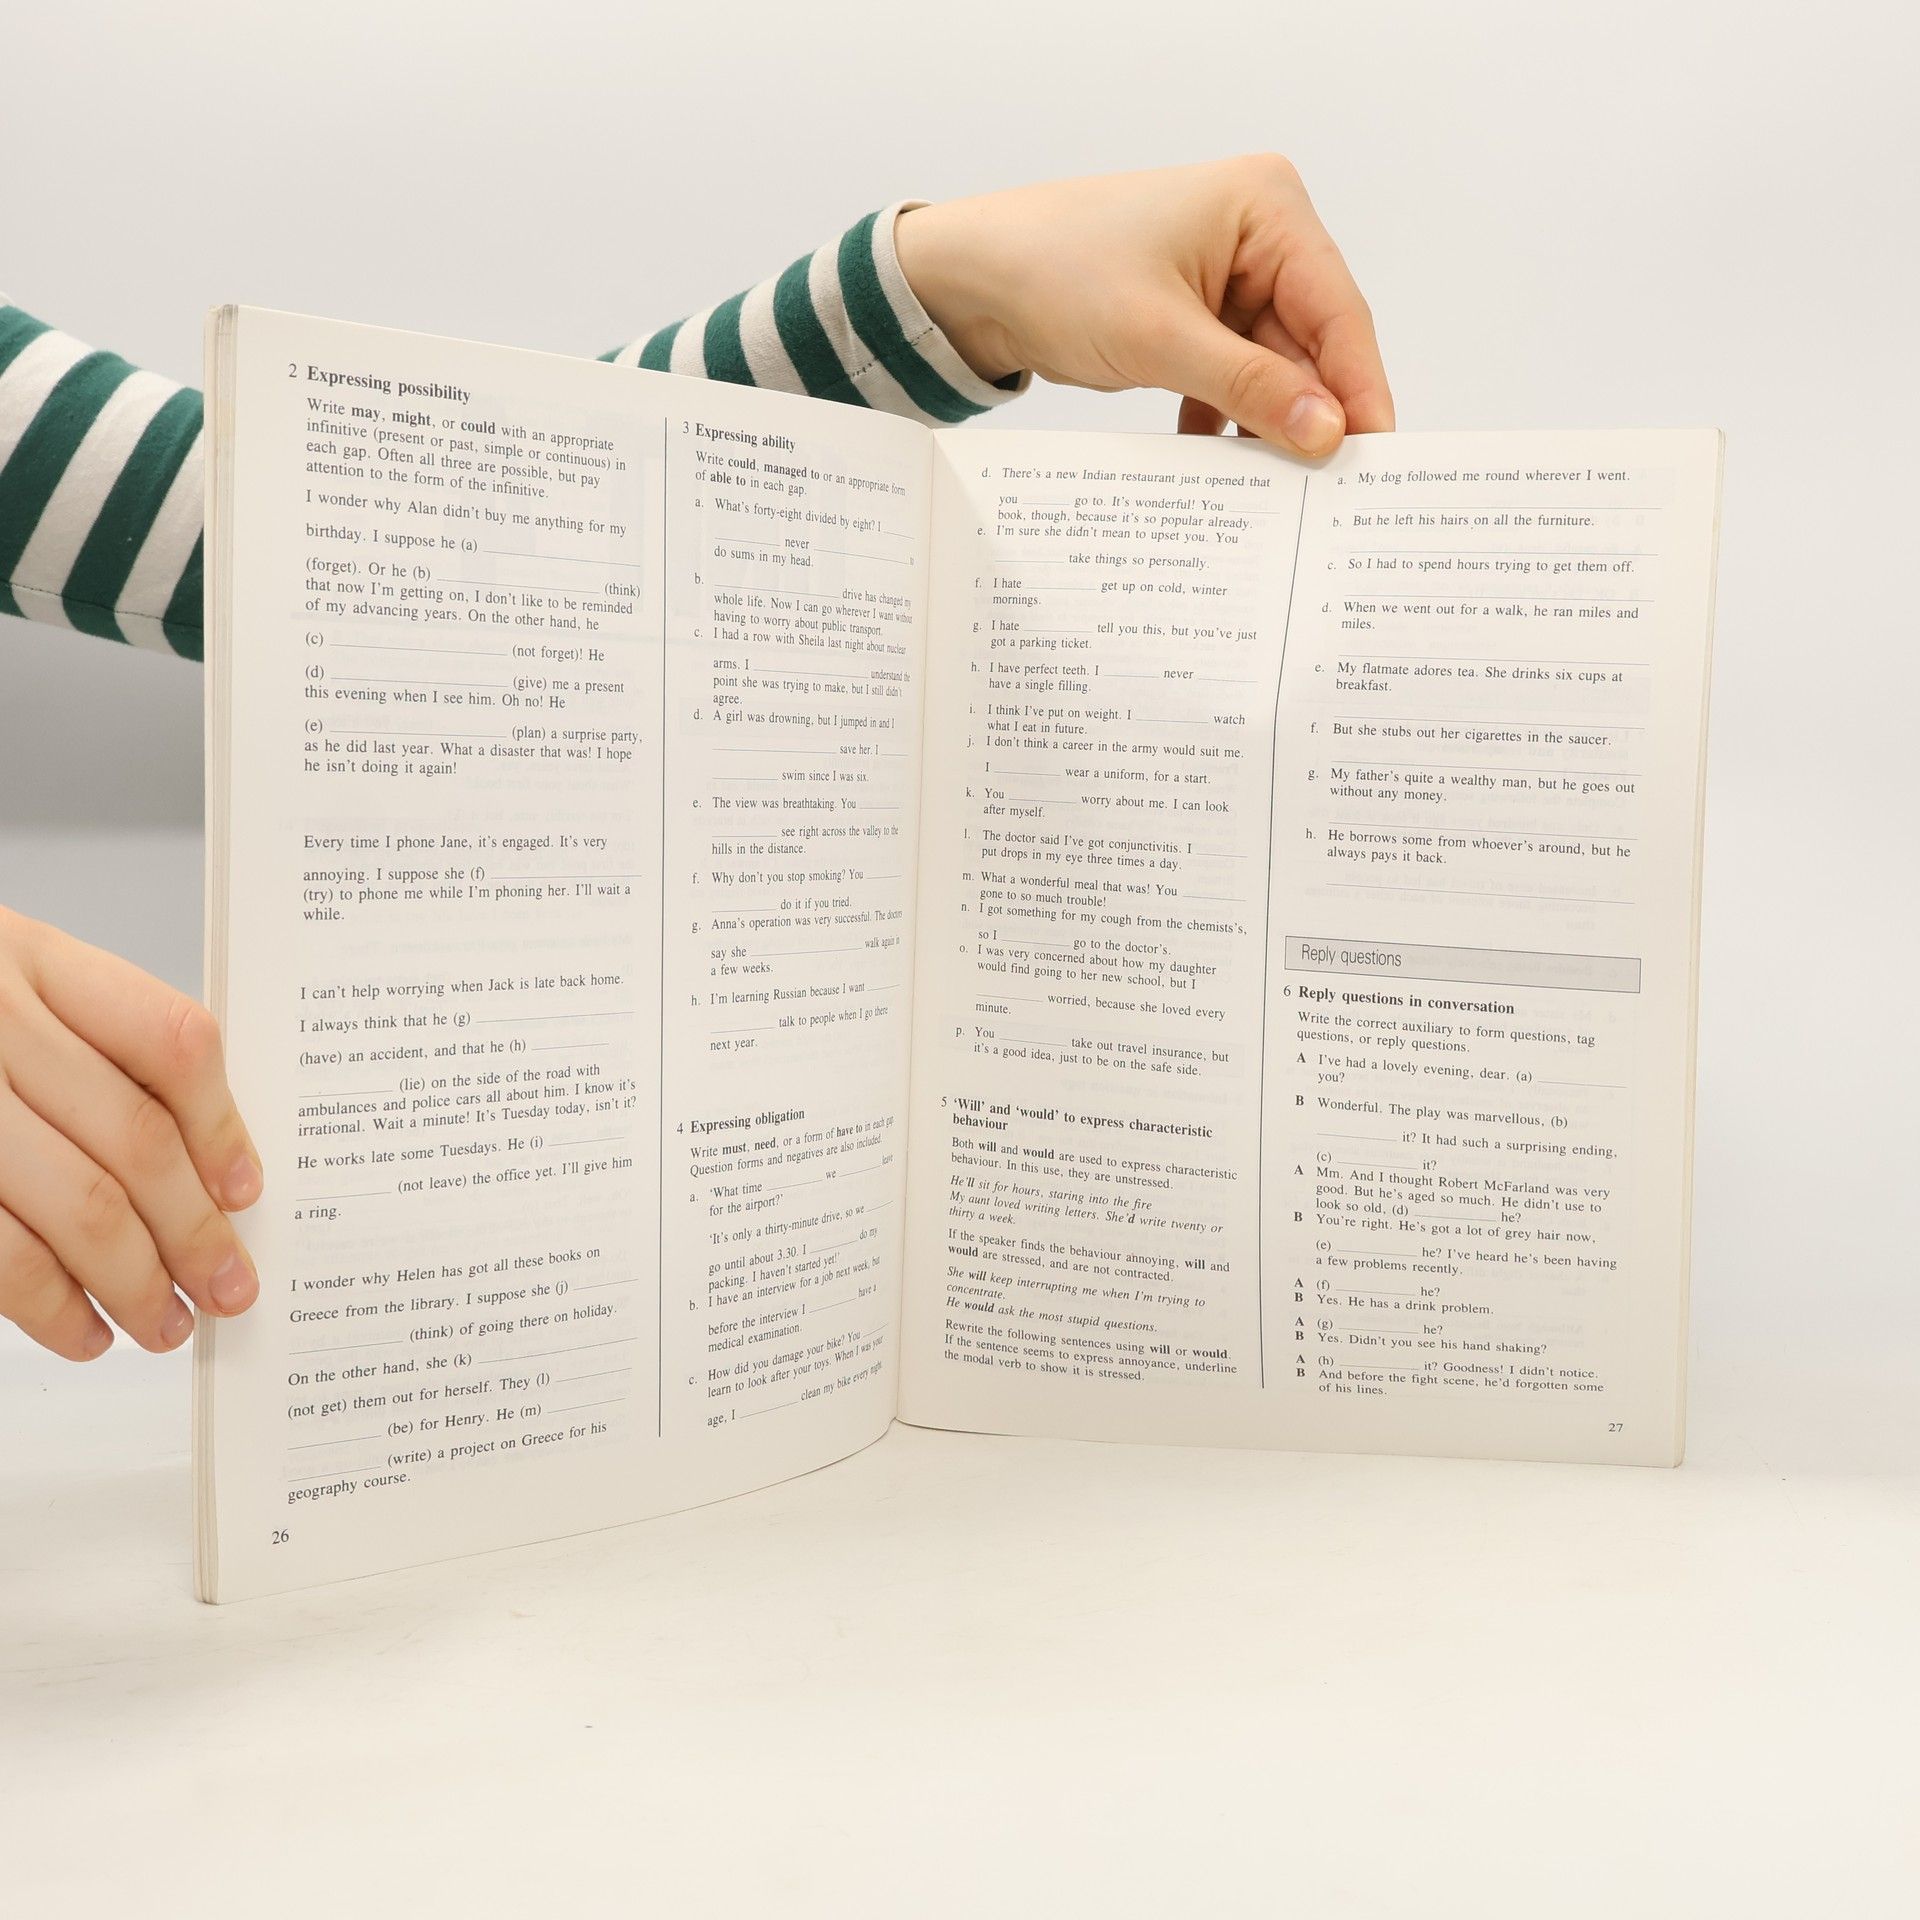 2 Expressing possibility
Write may, might, or could with an appropriate
infinitive (present or past, simple or continuous) in
each gap. Often all three are possible, but pay
attention to the form of the infinitive.
I wonder why Alan didn't buy me anything for my
birthday. I suppose he (a) ____
(forget). Or he (b) ____ (think)
that now I'm getting on, I don't like to be reminded
of my advancing years. On the other hand, he
(c) ____ (not forget)! He
(d) ____ (give) me a present
this evening when I see him. Oh no! He
(e) ____ (plan) a surprise party,
as he did last year. What a disaster that was! I hope
he isn't doing it again!
Every time I phone Jane, it's engaged. It's very
annoying. I suppose she (f) ____
(try) to phone me while I'm phoning her. I'll wait a
while.
I can't help worrying when Jack is late back home.
I always think that he (g) ____
(have) an accident, and that he (h) ____
____ (lie) on the side of the road with
ambulances and police cars all about him. I know it's
irrational. Wait a minute! It's Tuesday today, isn't it?
He works late some Tuesdays. He (i) ____
____ (not leave) the office yet. I'll give him
a ring.
I wonder why Helen has got all these books on
Greece from the library. I suppose she (j) ____
____ (think) of going there on holiday.
On the other hand, she (k) ____
(not get) them out for herself. They (l) ____
____ (be) for Henry. He (m) ____
____ (write) a project on Greece for his
geography course.
26
3 Expressing ability
Write could, managed to or an appropriate form
of able to in each gap.
a. What's forty-eight divided by eight? I ____
____ never ____ to
do sums in my head.
b. ____ drive has changed my
whole life. Now I can go wherever I want without
having to worry about public transport.
c. I had a row with Sheila last night about nuclear
arms. I ____ understand the
point she was trying to make, but I still didn't
agree.
d. A girl was drowning, but I jumped in and I
____ save her. I ____
____ swim since I was six.
e. The view was breathtaking. You ____
____ see right across the valley to the
hills in the distance.
f. Why don't you stop smoking? You ____
____ do it if you tried.
g. Anna's operation was very successful. The doctors
say she ____ walk again in
a few weeks.
h. I'm learning Russian because I want ____
____ talk to people when I go there
next year.
4 Expressing obligation
Write must, need, or a form of have to in each gap.
Question forms and negatives are also included.
a. 'What time ____ we ____ leave
for the airport?'
'It's only a thirty-minute drive, so we ____
go until about 3.30. I ____ do my
packing. I haven't started yet!'
b. I have an interview for a job next week, but
before the interview I ____ have a
medical examination.
c. How did you damage your bike? You ____
learn to look after your toys. When I was your
age, I ____ clean my bike every night.
d. There's a new Indian restaurant just opened that
you ____ go to. It's wonderful! You ____
book, though, because it's so popular already.
e. I'm sure she didn't mean to upset you. You
____ take things so personally.
f. I hate ____ get up on cold, winter
mornings.
g. I hate ____ tell you this, but you've just
got a parking ticket.
h. I have perfect teeth. I ____ never ____
have a single filling.
i. I think I've put on weight. I ____ watch
what I eat in future.
j. I don't think a career in the army would suit me.
I ____ wear a uniform, for a start.
k. You ____ worry about me. I can look
after myself.
l. The doctor said I've got conjunctivitis. I ____
put drops in my eye three times a day.
m. What a wonderful meal that was! You ____
gone to so much trouble!
n. I got something for my cough from the chemists's,
so I ____ go to the doctor's.
o. I was very concerned about how my daughter
would find going to her new school, but I
____ worried, because she loved every
minute.
p. You ____ take out travel insurance, but
it's a good idea, just to be on the safe side.
5 'Will' and 'would' to express characteristic
behaviour
Both will and would are used to express characteristic
behaviour. In this use, they are unstressed.
He'll sit for hours, staring into the fire
My aunt loved writing letters. She'd write twenty or
thirty a week.
If the speaker finds the behaviour annoying, will and
would are stressed, and are not contracted.
She will keep interrupting me when I'm trying to
concentrate.
He would ask the most stupid questions.
Rewrite the following sentences using will or would.
If the sentence seems to express annoyance, underline
the modal verb to show it is stressed.
a. My dog followed me round wherever I went.
b. But he left his hairs on all the furniture.
c. So I had to spend hours trying to get them off.
d. When we went out for a walk, he ran miles and
miles.
e. My flatmate adores tea. She drinks six cups at
breakfast.
f. But she stubs out her cigarettes in the saucer.
g. My father's quite a wealthy man, but he goes out
without any money.
h. He borrows some from whoever's around, but he
always pays it back.
Reply questions
6 Reply questions in conversation
Write the correct auxiliary to form questions, tag
questions, or reply questions.
A I've had a lovely evening, dear. (a) ____
you?
B Wonderful. The play was marvellous, (b)
____ it? It had such a surprising ending,
(c) ____ it?
A Mm. And I thought Robert McFarland was very
good. But he's aged so much. He didn't use to
look so old, (d) ____ he?
B You're right. He's got a lot of grey hair now,
(e) ____ he? I've heard he's been having
a few problems recently.
A (f) ____ he?
B Yes. He has a drink problem.
A (g) ____ he?
B Yes. Didn't you see his hand shaking?
A (h) ____ it? Goodness! I didn't notice.
B And before the fight scene, he'd forgotten some
of his lines.
27